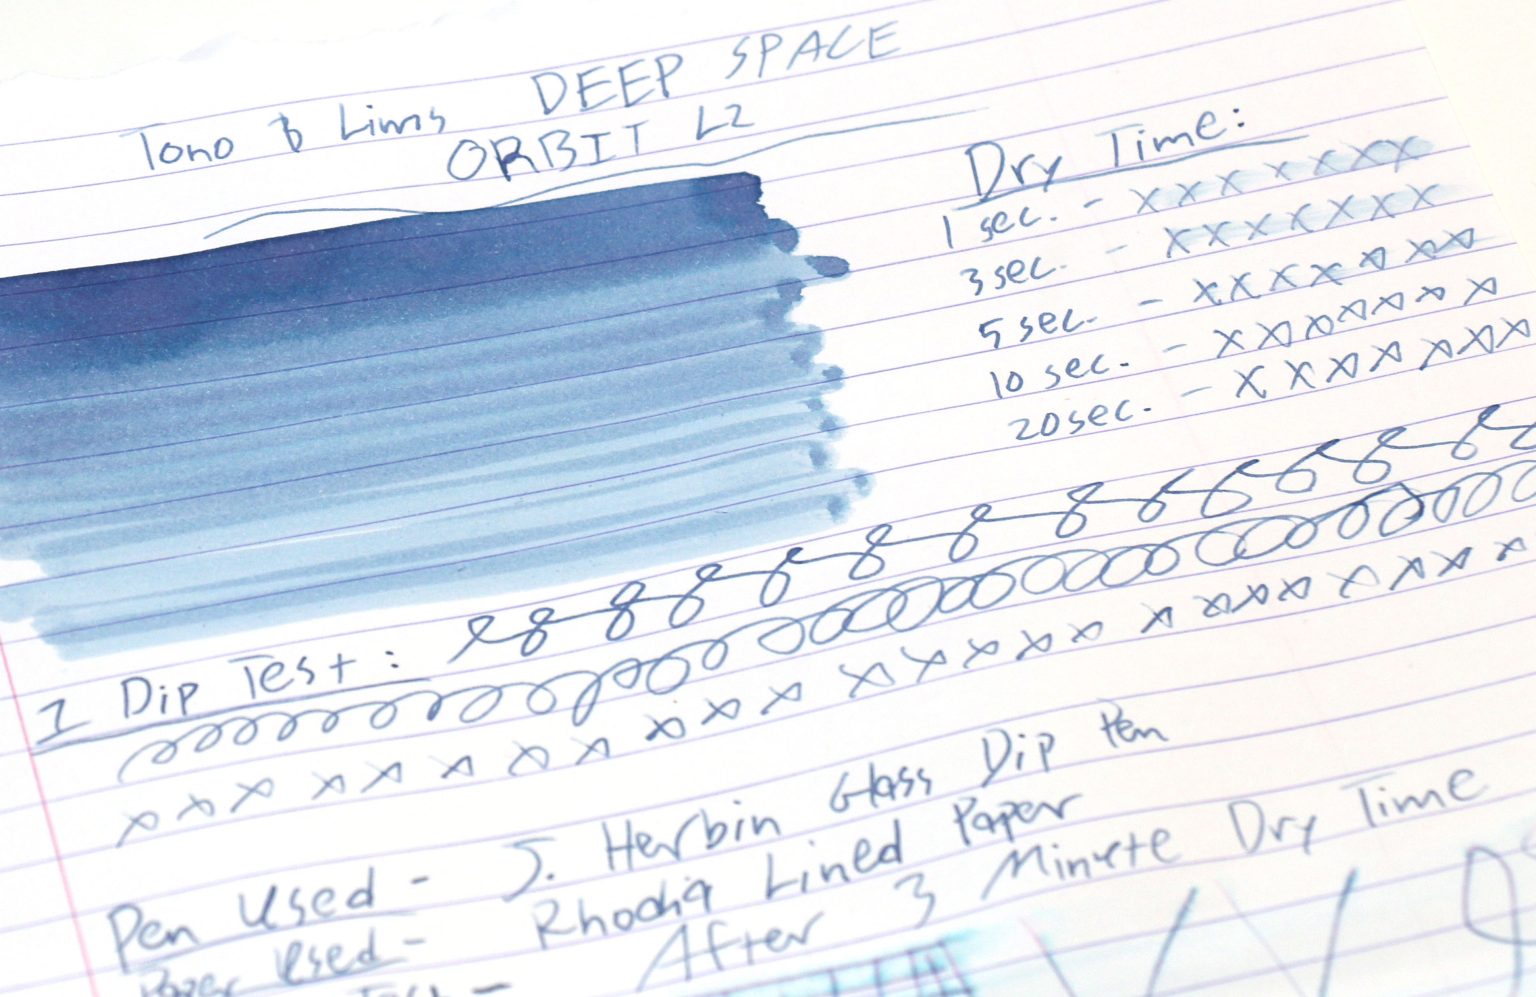 Tono & Lims DEEP SPACE
ORBIT L2
Dry Time:
1 sec. - x x x x x x x
3 sec. - x x x x x x x
5 sec. - x x x x x x x
10 sec. - x x x x x x x
20 sec. - x x x x x x x
1 Dip Test:
x x x x x x x x x x x x x x x x x x x x x x x x
Pen Used - J. Herbin Glass Dip Pen
Paper Used - Rhodia Lined Paper
Test - After 3 Minute Dry Time